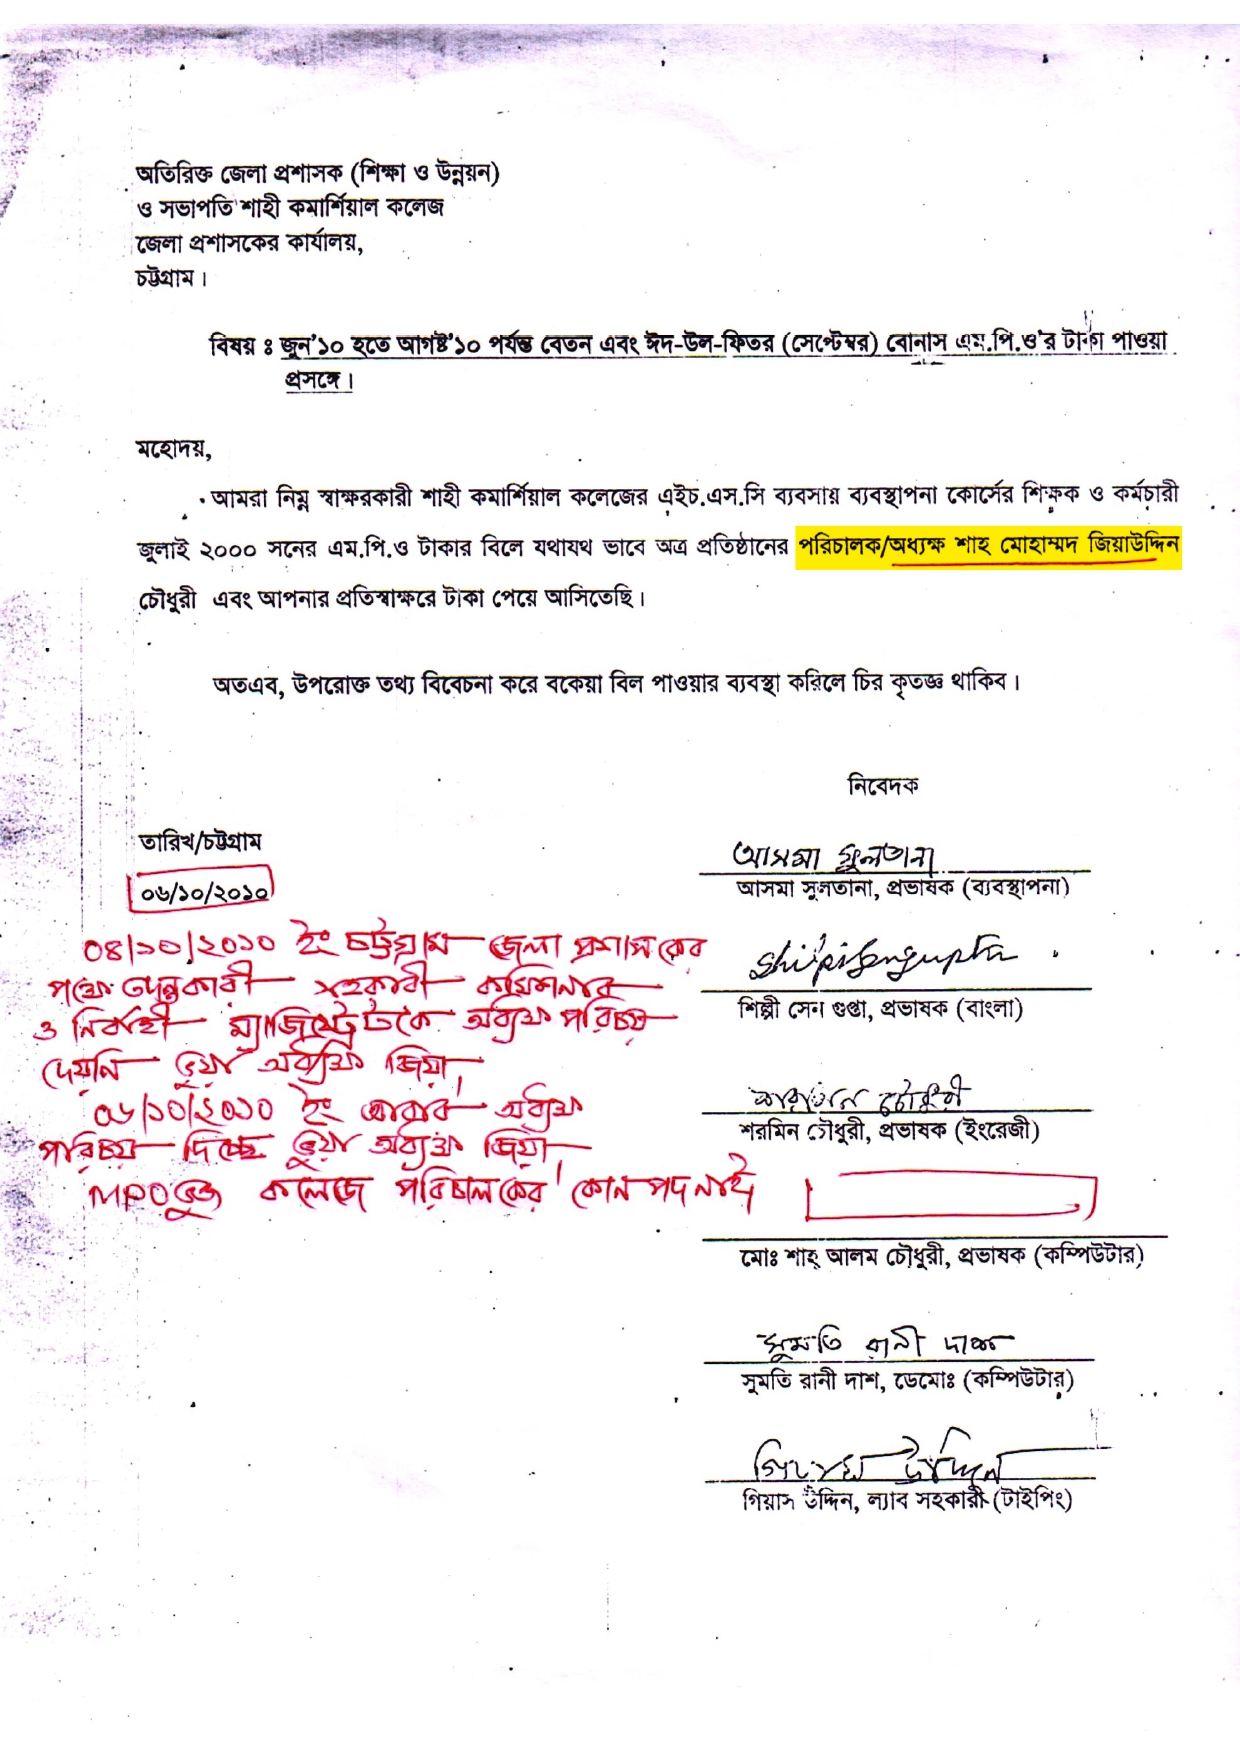 অতিরিক্ত জেলা প্রশাসক (শিক্ষা ও উন্নয়ন)
ও সভাপতি শাহী কমার্শিয়াল কলেজ
জেলা প্রশাসকের কার্যালয়,
চট্টগ্রাম।
বিষয় ঃ জুন'১০ হতে আগষ্ট'১০ পর্যন্ত বেতন এবং ঈদ-উল-ফিতর (সেপ্টেম্বর) বোনাস এম.পি.ও'র টাকা পাওয়া
প্রসঙ্গে।
মহোদয়,
আমরা নিম্ন স্বাক্ষরকারী শাহী কমার্শিয়াল কলেজের এইচ.এস.সি ব্যবসায় ব্যবস্থাপনা কোর্সের শিক্ষক ও কর্মচারী
জুলাই ২০০০ সনের এম.পি.ও টাকার বিলে যথাযথ ভাবে অত্র প্রতিষ্ঠানের পরিচালক/অধ্যক্ষ শাহ মোহাম্মদ জিয়াউদ্দিন
চৌধুরী এবং আপনার প্রতিস্বাক্ষরে টাকা পেয়ে আসিতেছি।
অতএব, উপরোক্ত তথ্য বিবেচনা করে বকেয়া বিল পাওয়ার ব্যবস্থা করিলে চির কৃতজ্ঞ থাকিব।
নিবেদক
তারিখ/চট্টগ্রাম
০৬/১০/২০১০
আসমা সুলতানা
আসমা সুলতানা, প্রভাষক (ব্যবস্থাপনা)
০৪/১০/২০১০ ইং চট্টগ্রাম জেলা প্রশাসকের
পক্ষে তদন্তকারী সহকারী কমিশনার
ও নির্বাহী ম্যাজিষ্ট্রেটকে অধ্যক্ষ পরিচয়
দেয়নি ভুয়া অধ্যক্ষ জিয়া,
০৬/১০/২০১০ ইং আবার অধ্যক্ষ
পরিচয় দিচ্ছে ভুয়া অধ্যক্ষ জিয়া
MPOভুক্ত কলেজে পরিচালকের কোন পদ নাই
Shilpi Sengupta
শিল্পী সেন গুপ্তা, প্রভাষক (বাংলা)
শারমিন চৌধুরী
শরমিন চৌধুরী, প্রভাষক (ইংরেজী)
মোঃ শাহ্ আলম চৌধুরী, প্রভাষক (কম্পিউটার)
সুমতি রানী দাশ
সুমতি রানী দাশ, ডেমোঃ (কম্পিউটার)
গিয়াস উদ্দিন
গিয়াস উদ্দিন, ল্যাব সহকারী (টাইপিং)